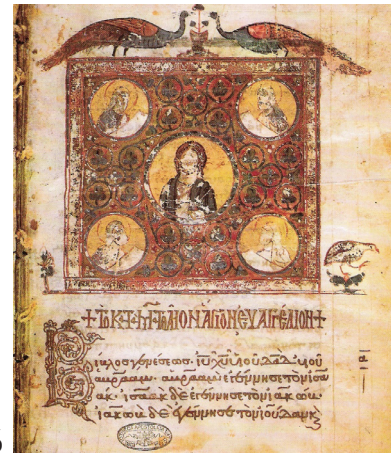 + ΤΟ Κ·Τ· ΜΤΘΑΙΟΝ ἍΓΙΟΝ ΕΥΑΓΓΕΛΙΟΝ +
Βίβλος γενέσεως ἰυ χυ υἱοῦ δαδ υἱοῦ
ἀβραάμ· ἀβραὰμ ἐγέννησε τὸν ἰσα
ακ· ἰσαὰκ δὲ ἐγέννησε τὸν ἰακώβ·
ἰακὼβ δὲ ἐγέννησε τὸν ἰούδαν κ